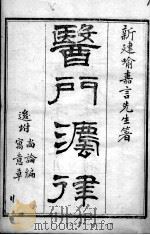 新建喻嘉言先生著
醫門法律
逸坿尚論編
寓意草